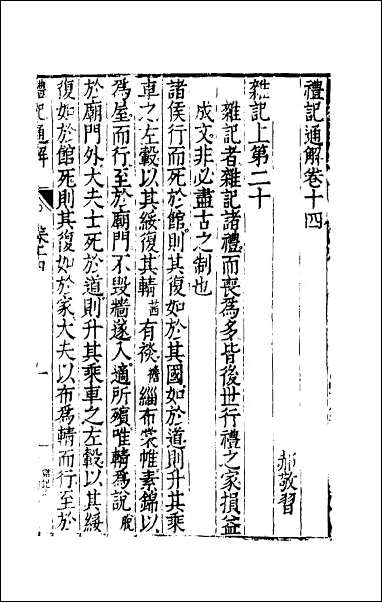 禮記通解卷十四
郝敬習
雜記上第二十
雜記者雜記諸禮而喪為多皆後世行禮之家損益
成文非必盡古之制也
諸侯行而死於館則其復如於其國如於道則升其乘
車之左轂以其綏復其輤茜有裧襜緇布裳帷素錦以
為屋而行至於廟門不毀牆遂入適所殯唯輤為說脫
於廟門外大夫士死於道則升其乘車之左轂以其綏
復如於館死則其復如於家大夫以布為輤而行至於
禮記通解
卷十四
一
雜記上